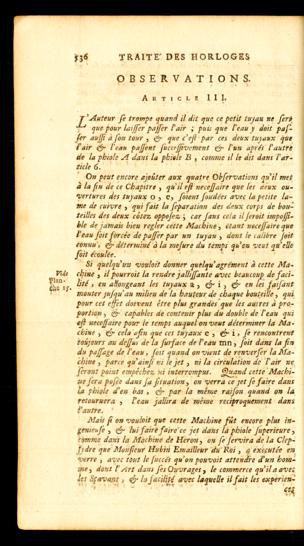 536 TRAITE' DES HORLOGES
OBSERVATIONS.
ARTICLE III.
L'Auteur se trompe quand il dit que ce petit tujau ne sert
que pour laisser passer l'air ; puis que l'eau y doit pas-
ser aussi à son tour, & que c'est par ces deux tujaux que
l'air & l'eau passent successivement & l'un aprés l'autre
de la phiole A dans la phiole B, comme il le dit dans l'ar-
ticle 6.
On peut encore ajoûter aux quatre Observations qu'il met
à la fin de ce Chapitre, qu'il est necessaire que les deux ou-
vertures des tujaux o, e, soient soudées avec la petite la-
me de cuivre, qui fait la separation des deux corps de bou-
teilles des deux côtez opposez ; car sans cela il seroit impossi-
ble de jamais bien regler cette Machine, étant necessaire que
l'eau soit forcée de passer par un tujau, dont le calibre soit
connu, & déterminé à la mesure du temps qu'on veut qu'elle
soit écoulée.
Si quelqu'un vouloit donner quelqu'agrément à cette Ma-
chine, il pourroit la rendre jallissante avec beaucoup de faci-
lité, en allongeant les tujaux a, & i, & en les faisant
monter jusqu'au milieu de la hauteur de chaque bouteille, qui
pour cet effet doivent être plus grandes que les autres à pro-
portion, & capables de contenir plus du double de l'eau qui
est necessaire pour le temps auquel on veut déterminer la Ma-
chine, & cela afin que ces tujaux e, & i, se rencontrent
toûjours au dessus de la surface de l'eau mn, soit dans la fin
du passage de l'eau, soit quand on vient de renverser la Ma-
chine, parce qu'ainsi ni le jet, ni la circulation de l'air ne
seront point empêchez ni interrompus. Quand cette Machi-
ne sera posée dans sa situation, on verra ce jet se faire dans
la phiole d'en bas, & par la même raison quand on la
retournera, l'eau jallira de même reciproquement dans
l'autre.
Vide
Plan-
che 15.
Mais si on vouloit que cette Machine fût encore plus in-
genieuse, & lui faire faire ce jet dans la phiole superieure,
comme dans la Machine de Heron, on se servira de la Clep-
sydre que Monsieur Hubin Emailleur du Roi, a executée en
verre, avec tout le succés qu'on pouvoit attendre d'un hom-
me, dont l'Art dans ses Ouvrages, le commerce qu'il a avec
les Sçavant, & la facilité avec laquelle il fait les experien-
ces